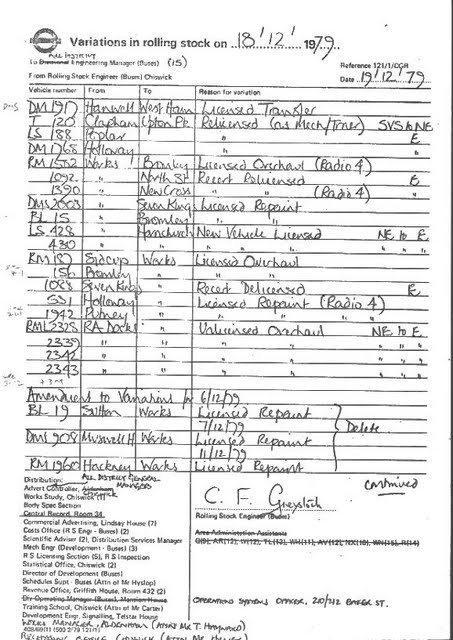 Variations in rolling stock on 18/12/1979
ALL DISTRICT
To Divisional Engineering Manager (Buses) (15)
Reference 121/1/CGR
From Rolling Stock Engineer (Buses) Chiswick
Date 19/12/79
Vehicle number From To Reason for variation
DMS DM 1917 Hanwell West Ham Licensed Transfer
T 120 Clapham Upton Pk Relicensed (as Mech/Trner) SVS to NE
LS 188 Poplar " " E
DM 1768 Holloway " "
RM 1552 Works Bromley Licensed Overhaul (Radio 4)
1092 " North St Recert Relicensed E
1390 " New Cross " " (Radio 4) "
DMS 2003 " Seven Kings Licensed Repaint
BL 15 " Bromley " "
LS 428 " Hanchurch New Vehicle Licensed NE to E
430 " " " " " " " "
RM 187 Sidcup Works Licensed Overhaul
156 Bromley " " "
1088 Seven Kings " Recert Delicensed E
531 Holloway " Licensed Repaint (Radio 4)
1942 Putney " " "
RML 2328 RA Docks " Unlicensed Overhaul NE to E
2339 " " " " " " "
2342 " " " " " " "
2343 " " " " " " "
Amendment to Variations for 6/12/79
BL 19 Sutton Works Licensed Repaint
7/12/79 Delete
DMS 908 Muswell H Works Licensed Repaint
11/12/79
RM 1960 Hackney Works Licensed Repaint
continued
Distribution: ALL DISTRICT GENERAL MANAGERS
Advert Controller, Aldenham CHISWICK
Works Study, Chiswick (1)
Body Spec Section
Central Record, Room 34
Commercial Advertising, Lindsay House (2)
Costs Office (R S Engr - Buses) (2)
Scientific Adviser (2), Distribution Services Manager
Mech Engr (Development - Buses) (3)
R S Licensing Section (5), R S Inspection
Statistical Office, Chiswick (2)
Director of Development (Buses)
Schedules Supt - Buses (Attn of Mr Hyslop)
Payroll Office, Griffith House, Room 432 (2)
Training School, Chiswick (Attn of Mr Carter)
Development Engr, Signalling, Telstar House
C. F. Greystock
Rolling Stock Engineer (Buses)
Area Administration Assistants
OPERATING SYSTEMS OFFICER, 210/212 BAKER ST.
WORKS MANAGER, ALDENHAM (ATTN MR T. HAYWARD)